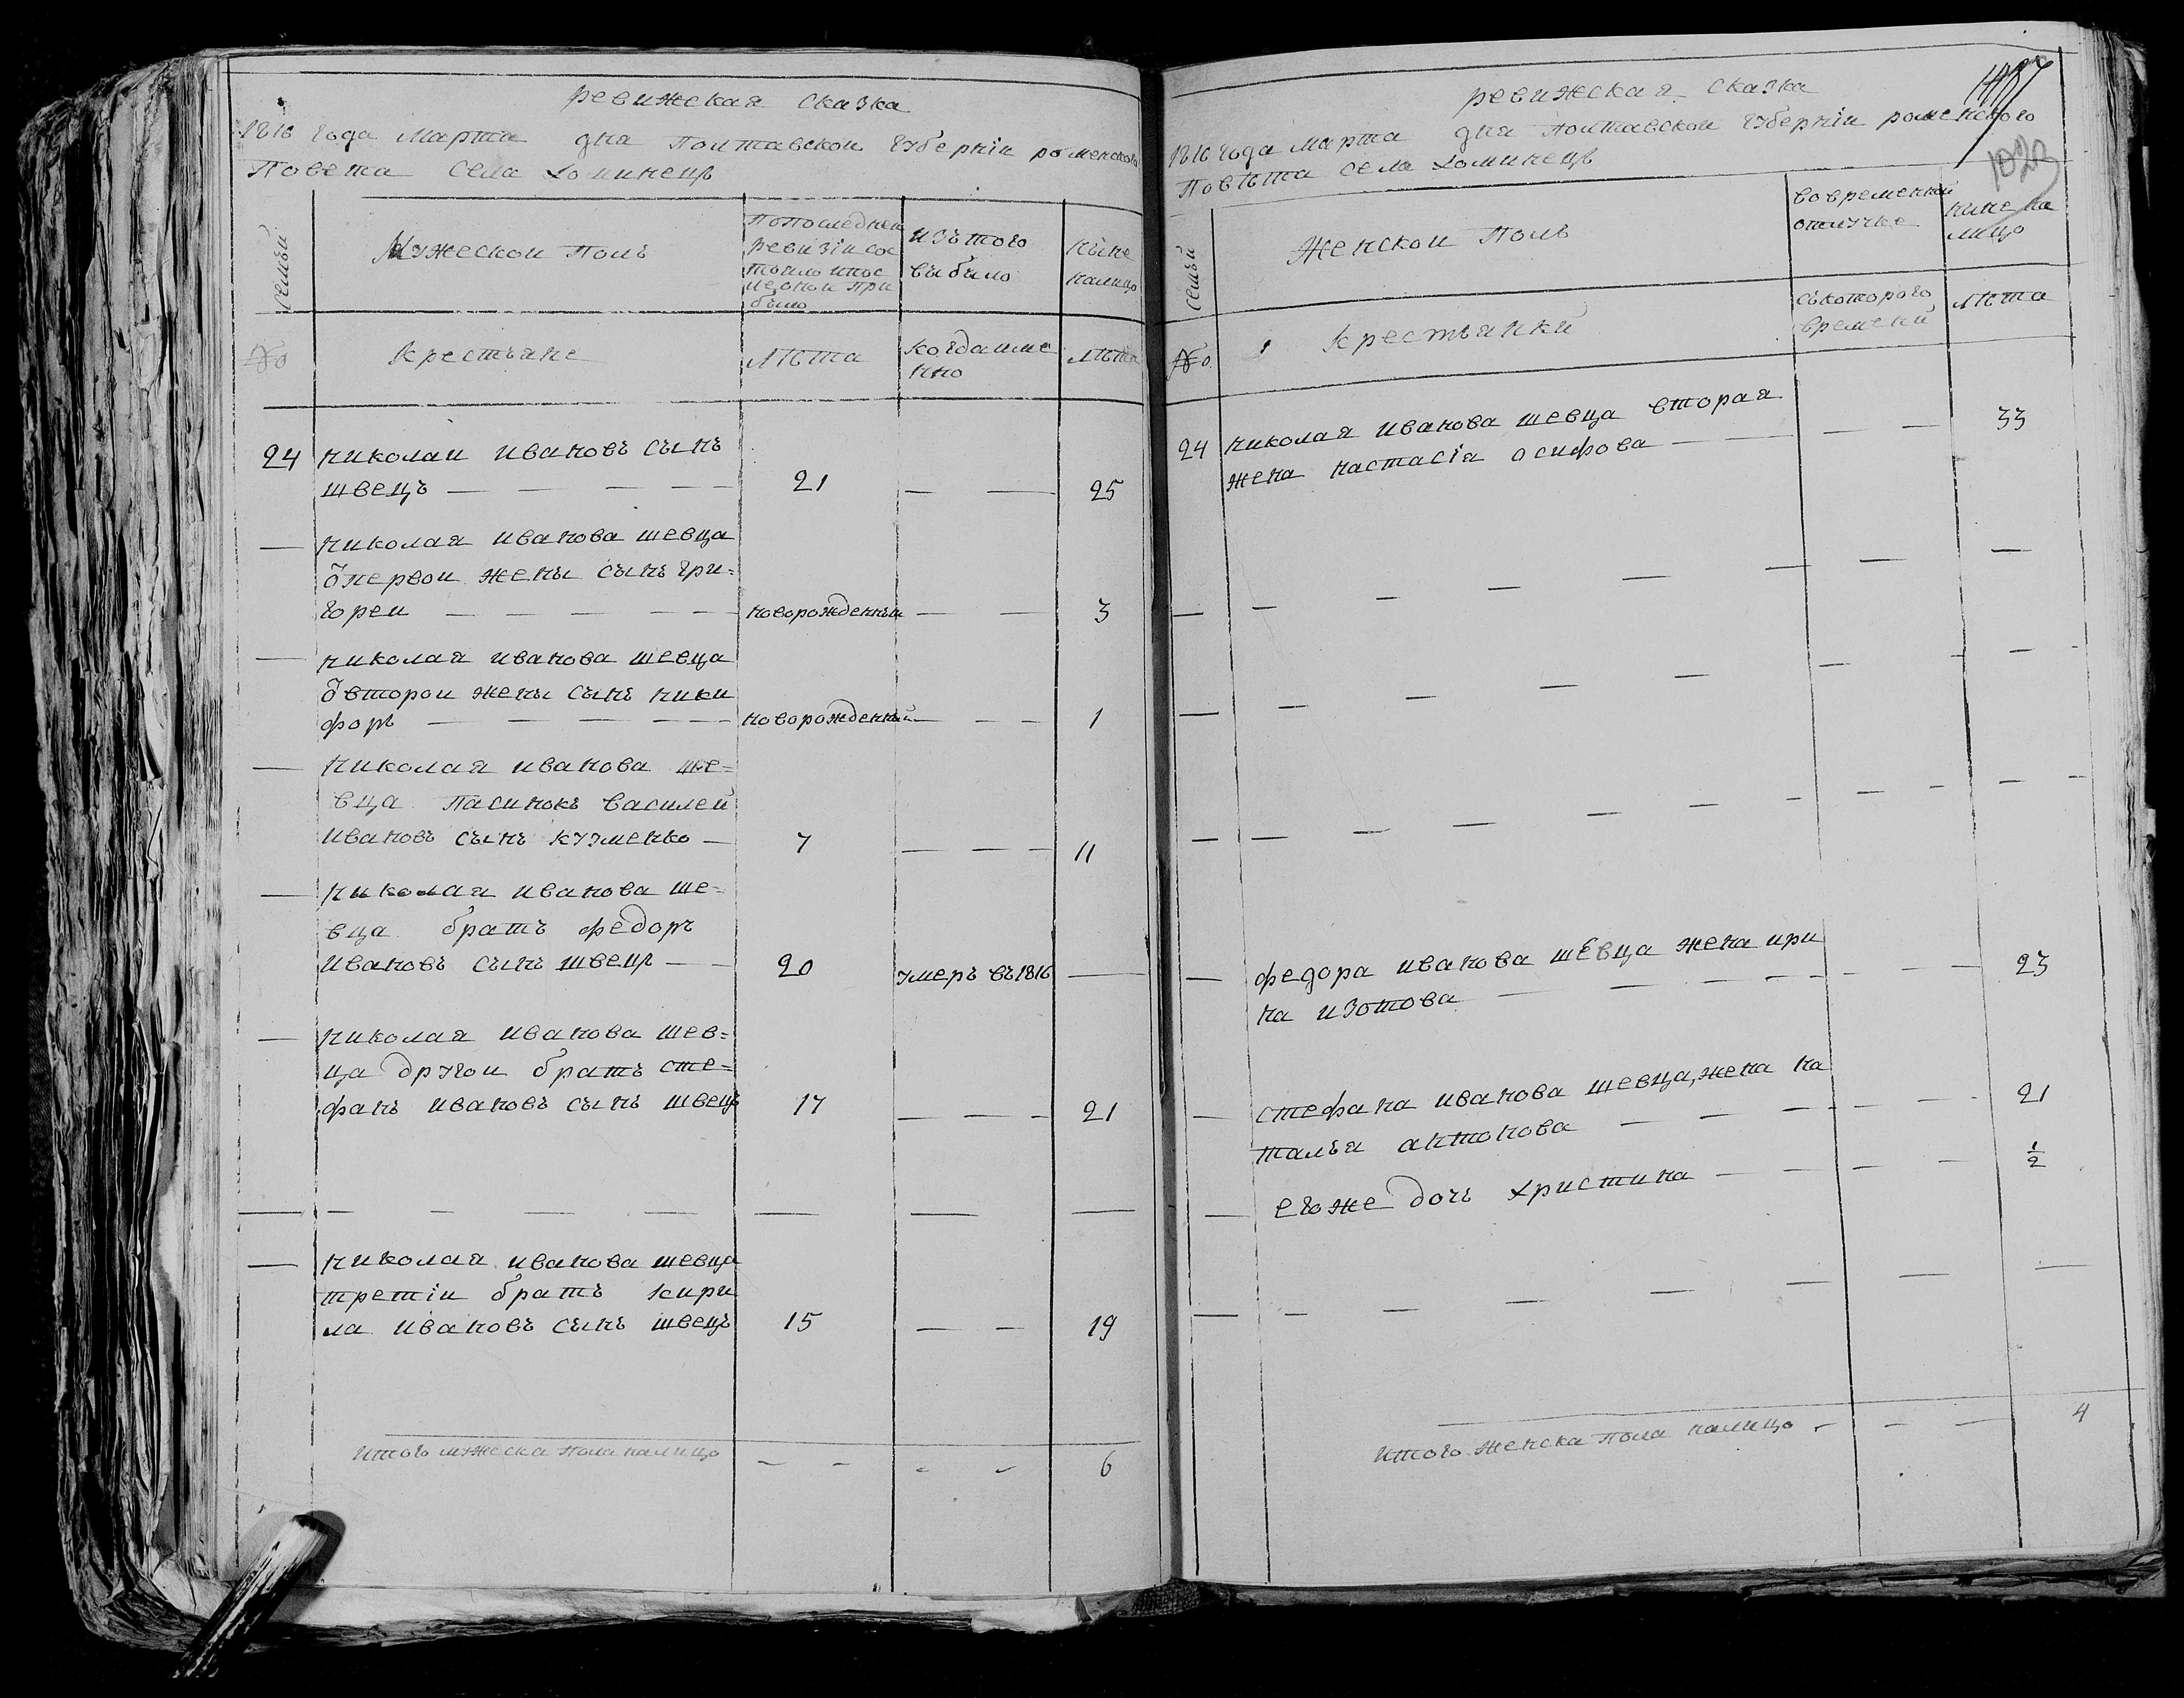 ревижская сказка
1816 года Марта дня Полтавской губернiи роменского
Повета села хоминецъ
семьи
Мужеской полъ
Попоследней
ревизiи сос
тояло ипос
ледной при
было
изътого
выбыло
ныне
налицо
№
крестьяне
лѣта
когдаиме
нно
лѣта
24 николаи ивановъ сынъ
швецъ — — — — 21 — — 25
— николая иванова шевца
ѿпервои жены сынъ гри=
гореи — — — — — новорожденныи — — 3
— николая иванова шевца
ѿвторои жены сынъ ники
форъ — — — — — новорожденныи — — — 1
— николая иванова ше=
вца пасинокъ василеи
ивановъ сынъ кузменко — 7 — — — 11
— николая иванова ше=
вца братъ федоръ
ивановъ сынъ швецъ — — 20 умеръ въ1816 —
— николая иванова шев=
ца другои братъ сте=
фанъ ивановъ сынъ швецъ 17 — — — 21
— — — — — — — —
— николая иванова шевца
третiи братъ кири
ла ивановъ сынъ швецъ 15 — — 19
итого мужеска пола налицо — — — — 6
ревижская сказка
1023
1816 года марта дня полтавской губернiи роменского
Повѣта села хоминецъ
семьи
Женскои полъ
вовременнои
отлучке
ныне на
лицо
№
крестьянки
съкоторого
времени
лѣта
24 николая иванова шевца вторая
жена настасiя осифова — — — — 33
— — — — — — — —
— — — — — — — —
— — — — — — — — —
— федора иванова шевца жена ири
на изотова — — — — — — — 23
— стефана иванова шевца, жена на
талья антонова — — — — — — 21
— егоже дочь христина — — — — 1/2
— — — — — — — —
итого женска пола налицо — — — 4